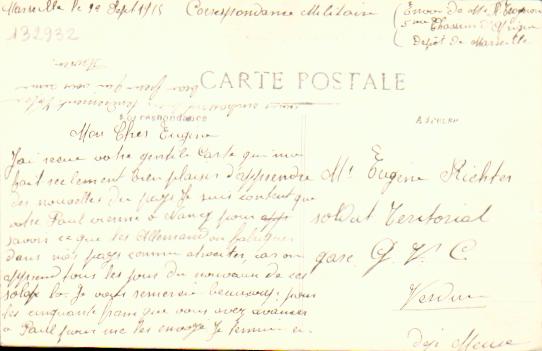 Marseille le 1e Sept 1915
Correspondance Militaire
Envoi de Mr P.
5eme Chasseurs d'Afrique
Dépôt de Marseille
132932
CARTE POSTALE
Correspondance
Adresse
Mon Cher Eugène
J'ai reçue votre gentille carte qui ma
fait seulement bien plaisir d'apprendre
des nouvelles du pays Je suis content que
votre Paul vienne à Nancy pour
savoir ce que les Allemand on fabriquer
dans nos pays comme atrociter, car on
apprend tous les jours du nouveaux de ces
la. Je vous remercie beaucoup pour
les cinquante franc que vous avez avancer
à Paul pour me les envoye Je termine en
vous embrassant bien tendrement Votre
pour que vous aime
Mr Eugène Richter
soldat Territorial
gare G. V. C.
Verdun
Meuse